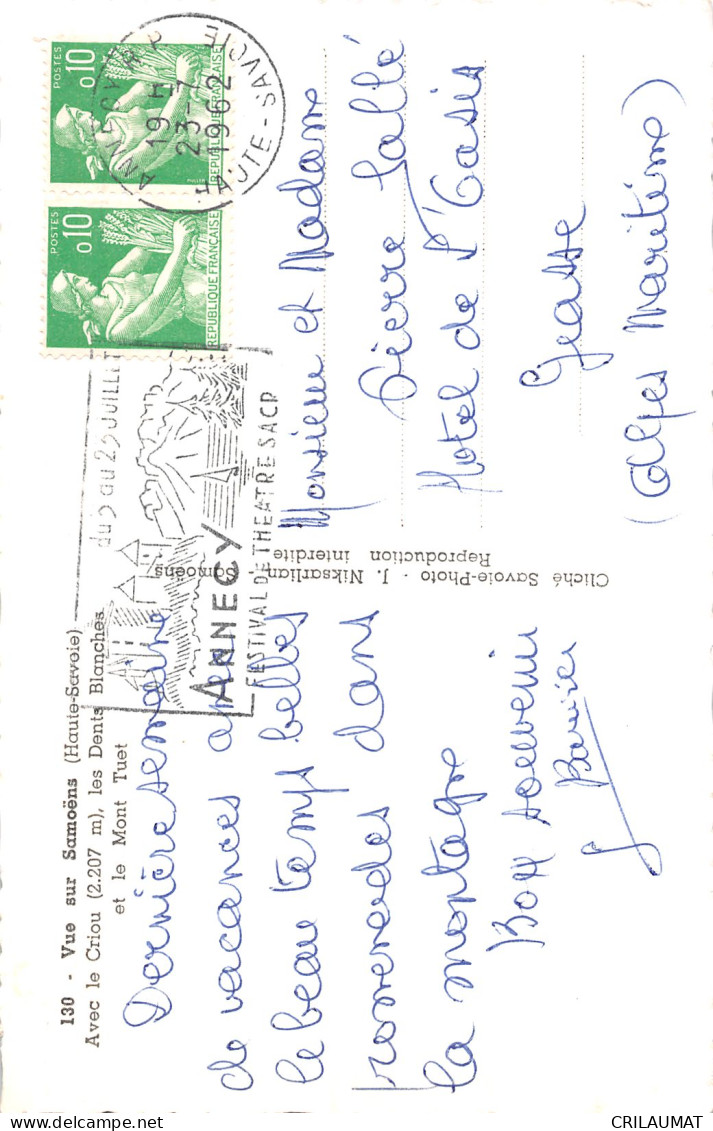 130 - Vue sur Samoëns (Haute-Savoie)
Avec le Criou (2.207 m), les Dents Blanches
et le Mont Tuet
Dernière semaine
de vacances avec
le beau temps belles
promenades dans
la montagne
Bon souvenir
Cliché Savoie-Photo - J. Niksarlian - Samoëns
Reproduction interdite
POSTES
0,10
REPUBLIQUE FRANÇAISE
POSTES
0,10
REPUBLIQUE FRANÇAISE
ANNECY R.P.
19 H
23-7
1962
HAUTE-SAVOIE
du 5 au 25 JUILLET
ANNECY
FESTIVAL DE THEATRE SACR
Monsieur et Madame
Pierre Lallé
Hotel de l'Oasis
Grasse
(Alpes Maritime)
CRILAUMAT